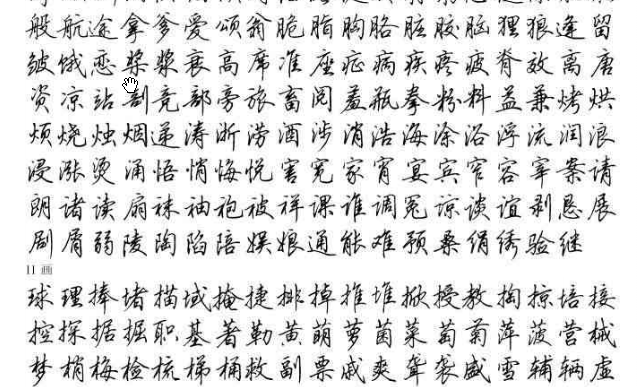 般航途拿爹爱颂翁脆脂胸胳脏胶脑狸狼逢留
皱饿恋桨浆衰高席准座症病疾疼疲脊效离唐
资凉站剖竞部旁旅畜阅羞瓶拳粉料益兼烤烘
烦烧烛烟递涛浙涝酒涉消浩海涂浴浮流润浪
浸涨烫涌悟悄悔悦害宽家宵宴宾窄容宰案请
朗诸读扇袜袖袍被祥课谁调冤谅谈谊剥恳展
剧屑弱陵陶陷陪娱娘通能难预桑绢绣验继
11 画
球理捧堵描域掩捷排掉推堆掀授教掏掠培接
控探据掘职基著勒黄萌萝菌菜萄菊萍菠营械
梦梢梅检梳梯桶救副票戚爽聋袭盛雪辅辆虚